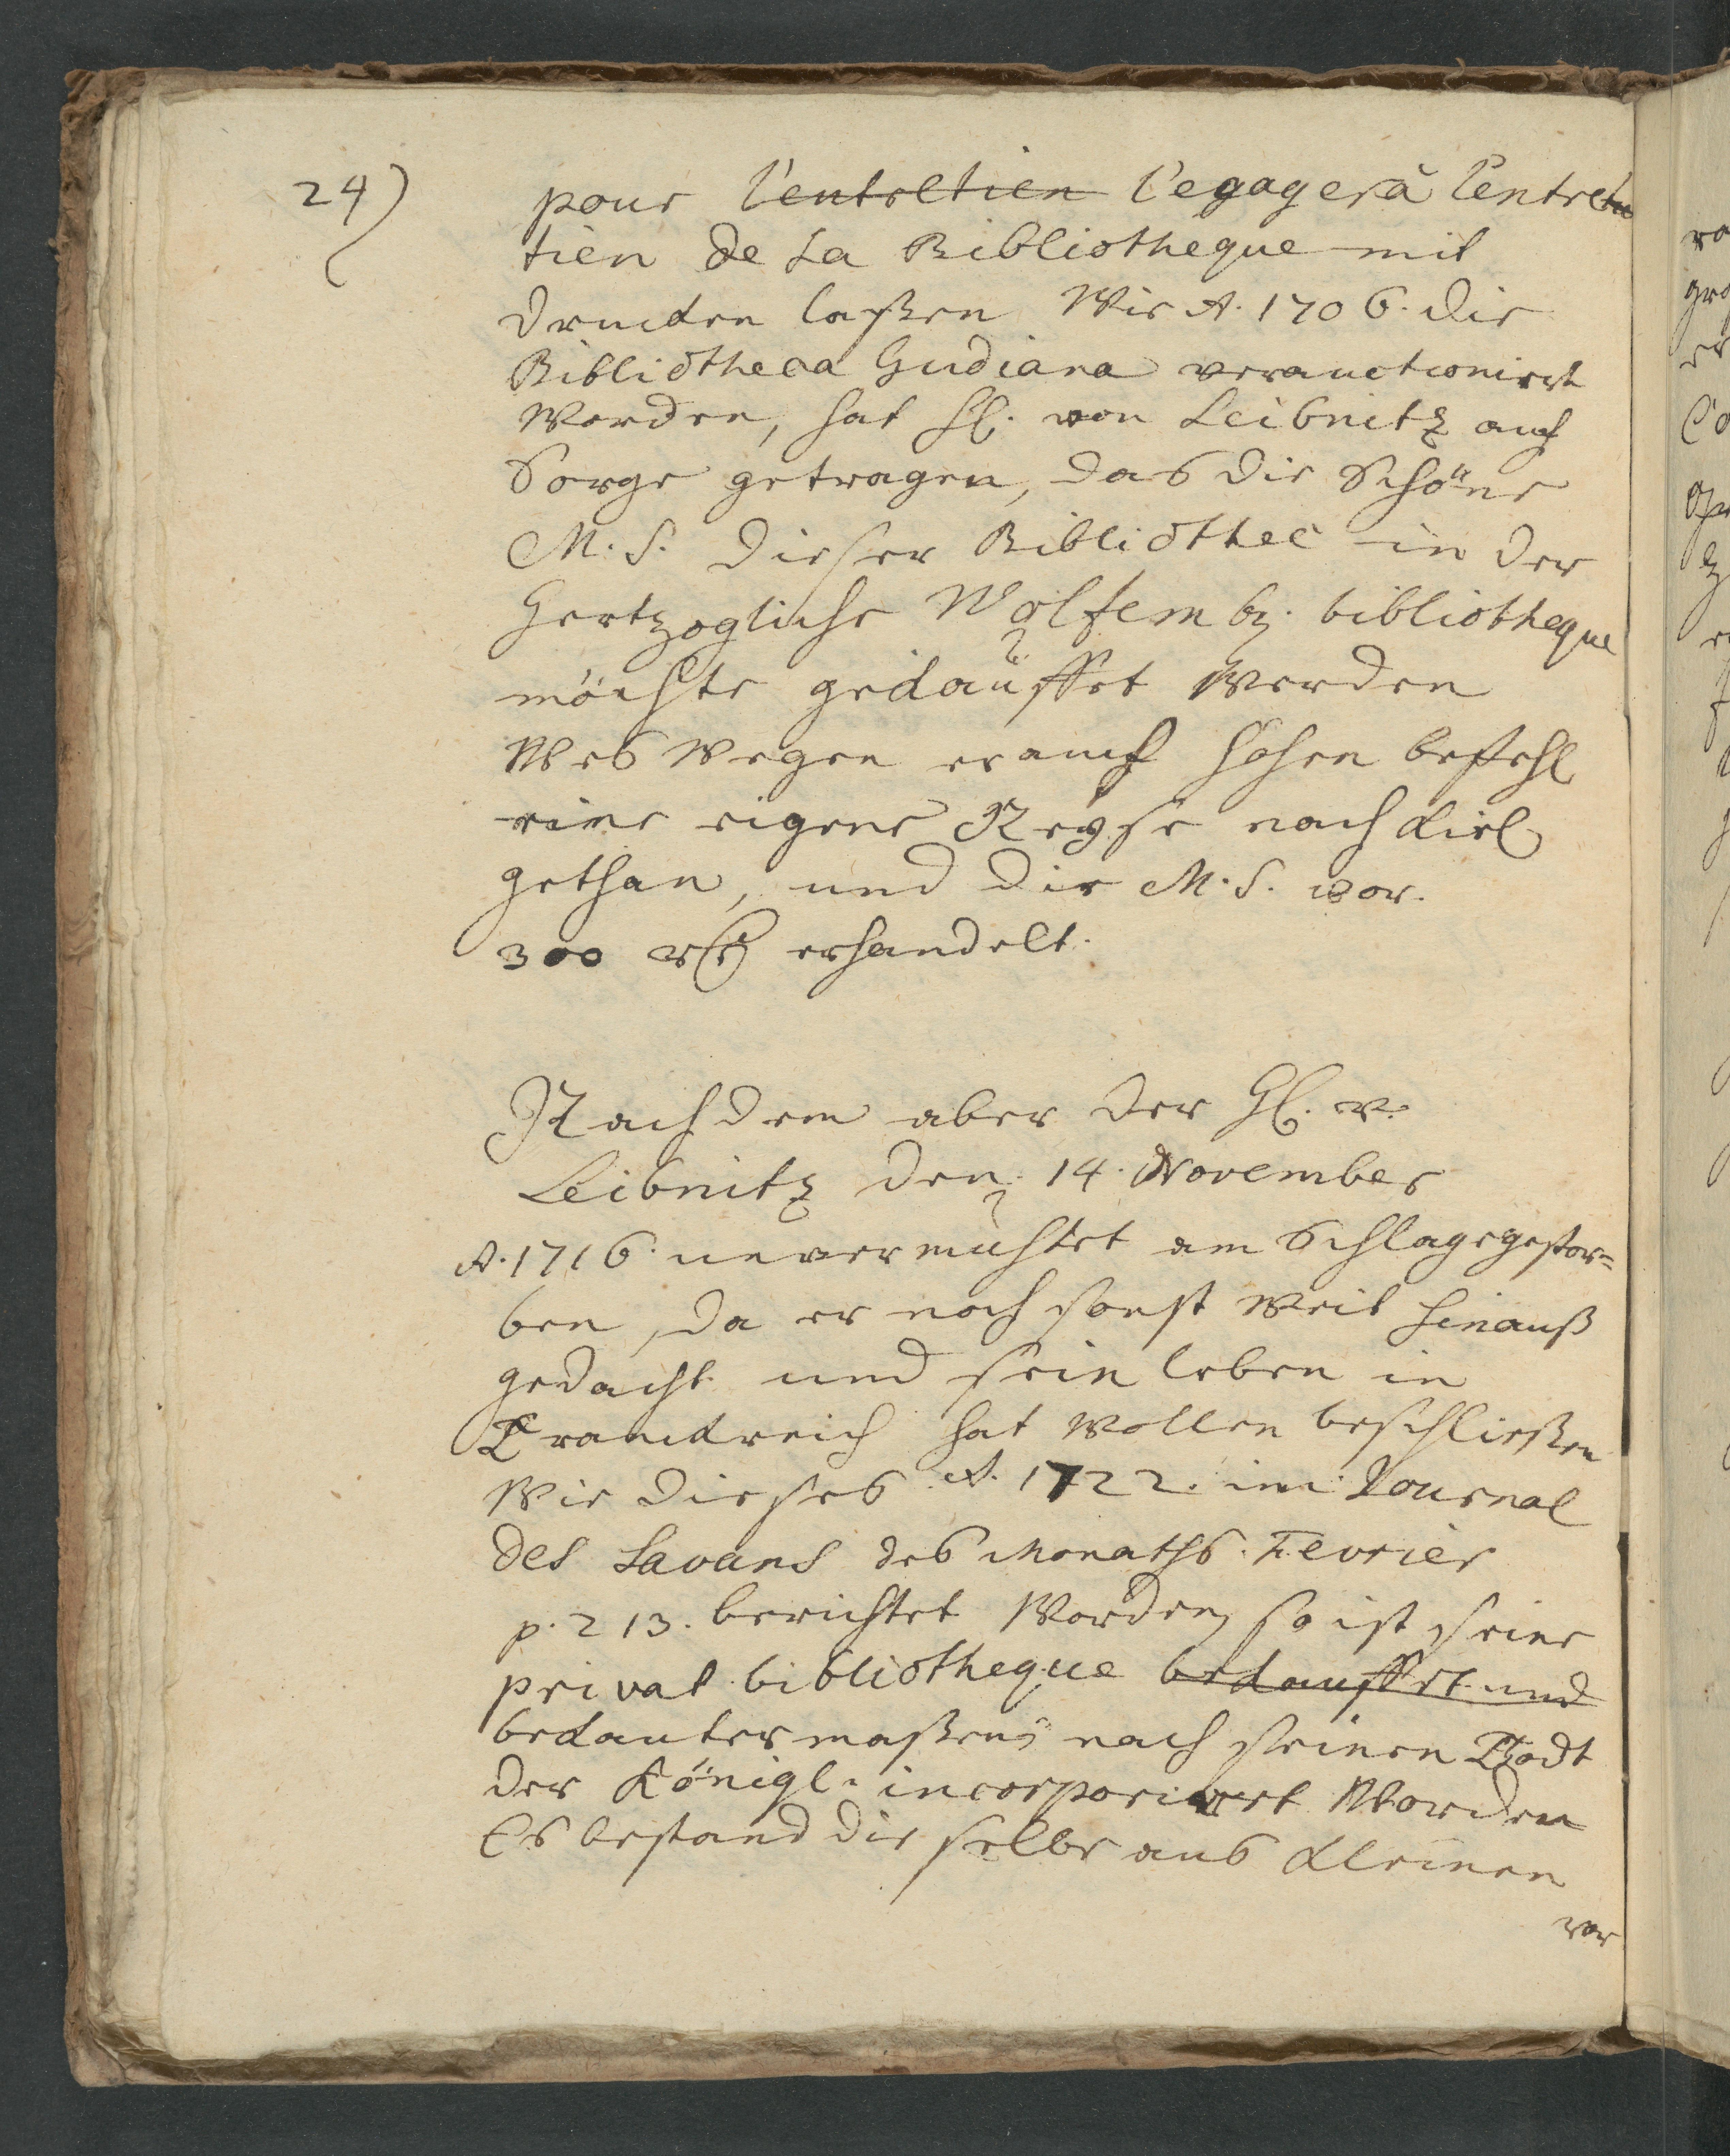 24)
pour l'entretien l'egager à l'entre
tien de La Bibliotheque mit
drucken laßen Wie A. 1706. die
Bibliotheca Gudiana verauctionirt
Worden, hat H. von Leibnitz auch
Sorge getragen, das die Schöne
M. S. dieser Bibliothec in der
Hertzogliche Wolfemb. bibliotheque
möchte gekauffet Werden
Wes Wegen er auf hohen befehl
eine eigene Reyse nach Kiel
gethan, und die M. S. vor.
300 erhandelt.
Nachdem aber der H. v.
Leibnitz den 14. November
A. 1716. unvermuhtet am Schlage gestor=
ben, da er noch sonst Weit hinauß
gedacht und sein leben in
Franckreich hat Wollen beschließen
Wie dieses A. 1722. im Journal
des Savans des Monaths Fevrier
p. 213. berichtet Worden, so ist seine
privat bibliotheque bekauffet und
bekanter maßen nach seinen Thodt
der Königl. incorporirt Worden
Es bestand die selbe aus Kleinen
vor